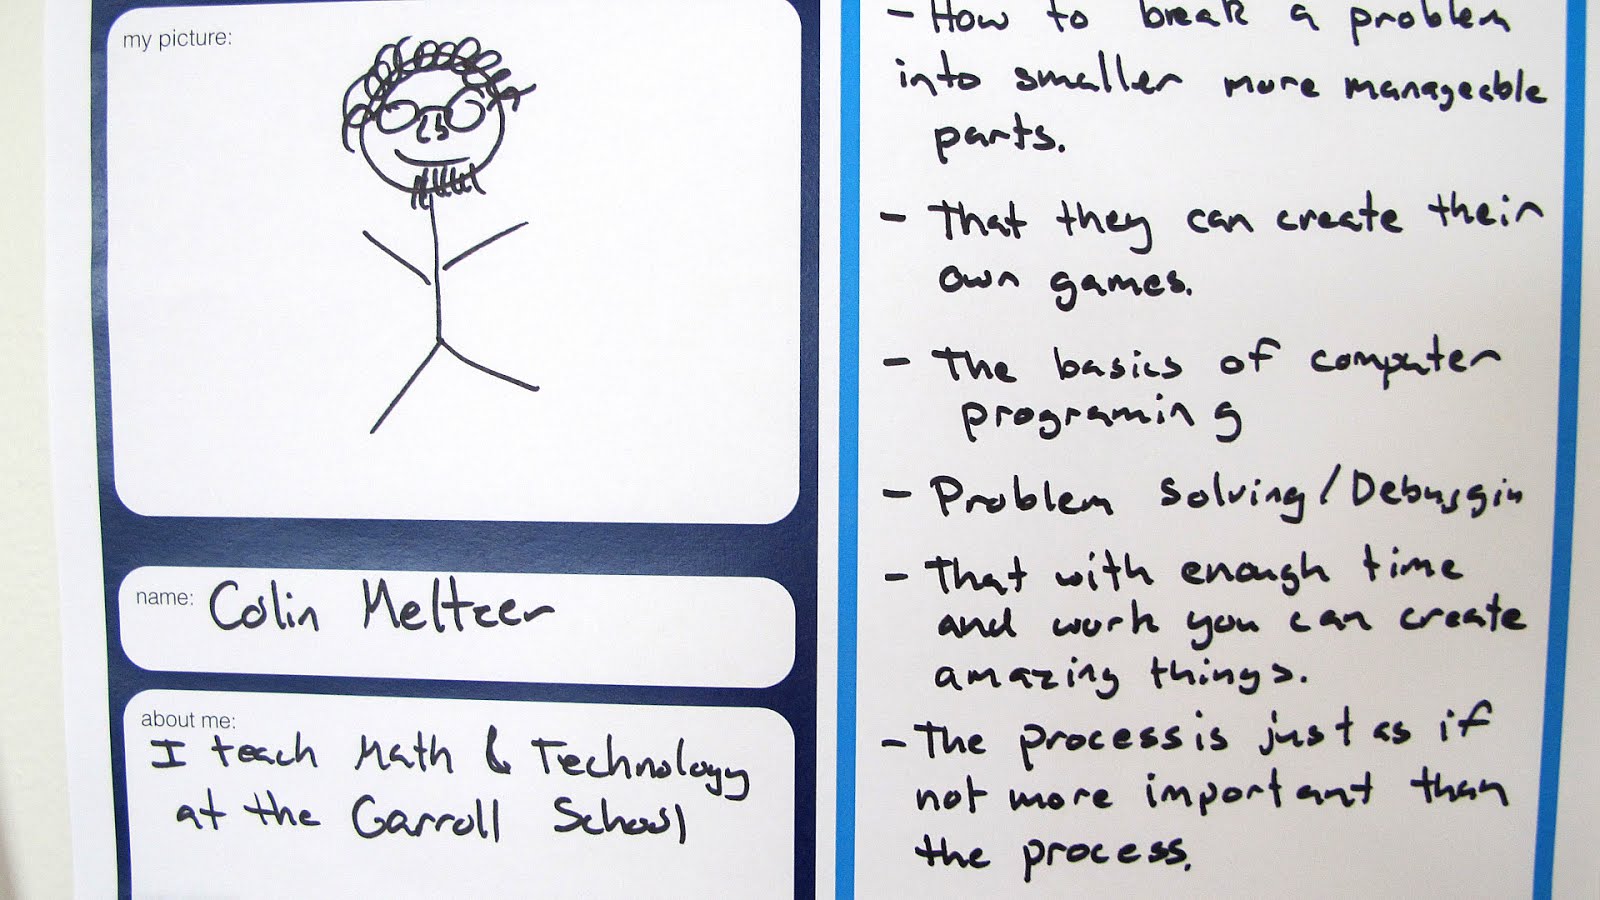 my picture:
name: Colin Meltzer
about me:
I teach Math & Technology
at the Carroll School
- How to break a problem
into smaller more manageable
parts.
- That they can create their
own games.
- The basics of computer
programing
- Problem Solving/Debuggin
- That with enough time
and work you can create
amazing things.
- The process is just as if
not more important than
the process.